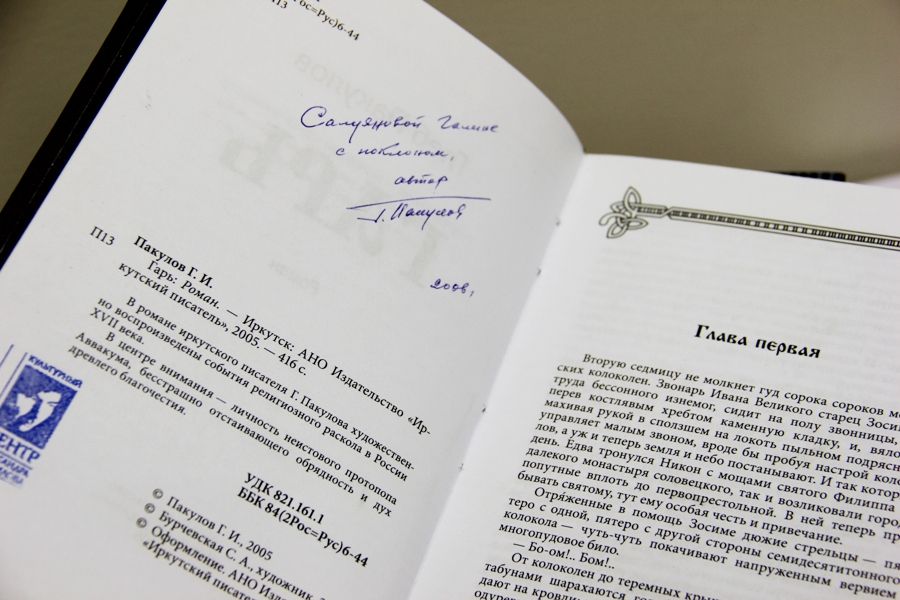 Рос=Рус)6-44
П13
Салуяновой Галине
с поклоном,
автор
Г. Пакулов
2008,
П13
Пакулов Г. И.
Гарь: Роман. — Иркутск: АНО Издательство «Ир-
кутский писатель», 2005. — 416 с.
В романе иркутского писателя Г. Пакулова художествен-
но воспроизведены события религиозного раскола в России
XVII века.
В центре внимания — личность неистового протопопа
Аввакума, бесстрашно отстаивающего обрядность и дух
древлего благочестия.
УДК 821.161.1
ББК 84(2Рос=Рус)6-44
© Пакулов Г. И., 2005
© Бурчевская С. А., художник, 2
© Оформление. АНО Издател
«Иркутский писател
КУЛЬТУРНЫЙ
ЕНТР
Глава первая
Вторую седмицу не молкнет гуд сорока сороков мо
ских колоколен. Звонарь Ивана Великого старец Зоси
труда бессонного изнемог, сидит на полу звонницы,
перев костлявым хребтом каменную кладку, и, вяло
махивая рукой в сползшем на локоть пыльном подрясн
управляет малым звоном, вроде бы пробуя настрой коло
лов, а уж и теперь земля и небо постанывают. И так котор
день. Едва тронулся Никон с мощами святого Филиппа
далекого монастыря соловецкого, так и возликовали горо
попутные вплоть до первопрестольной. В ней теперь пр
бывать святому, тут ему особая честь и привечание.
Отряженные в помощь Зосиме дюжие стрельцы — пя
теро с одной, пятеро с другой стороны семидесятитонного
колокола — чуть-чуть покачивают напруженным вервием
многопудовое било.
— Бо-ом!.. Бом!..
От колоколен до теремных крыш
табунами шарахаются
дают на кровли